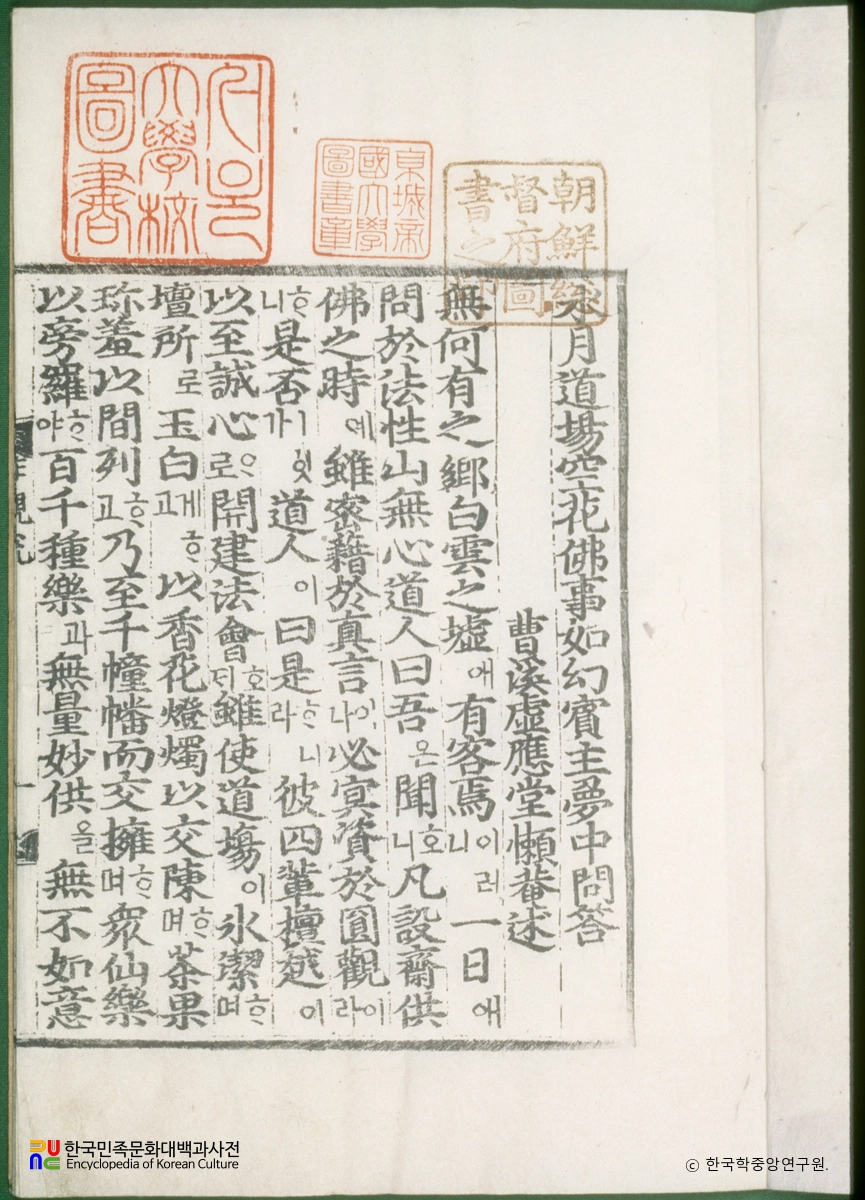 서울大學校圖書
京城帝國大學圖書章
朝鮮總督府圖書之印
水月道場空花佛事如幻賓主夢中問答
曹溪虛應堂懶菴述
無何有之鄕白雲之墟애有客焉이러니一日애
問於法性山無心道人曰吾온聞호니凡設齋供
佛之時예雖密藉於真言이나必冥資於圓觀이라
ᄒᆞ니是否잇가道人이曰是ᄒᆞ니라彼四軰檀越이
以至誠心으로開建法會호ᄃᆡ雖使道塲이氷潔ᄒᆞ며
壇所로玉白게ᄒᆞ고以香花燈燭以交陳ᄒᆞ며茶果
珎羞以間列ᄒᆞ고乃至千幢幡而交擁ᄒᆞ며衆仙樂
以旁羅ᄒᆞ야百千種樂과無量妙供을無不如意
한국민족문화대백과사전
Encyclopedia of Korean Culture
ⓒ 한국학중앙연구원.